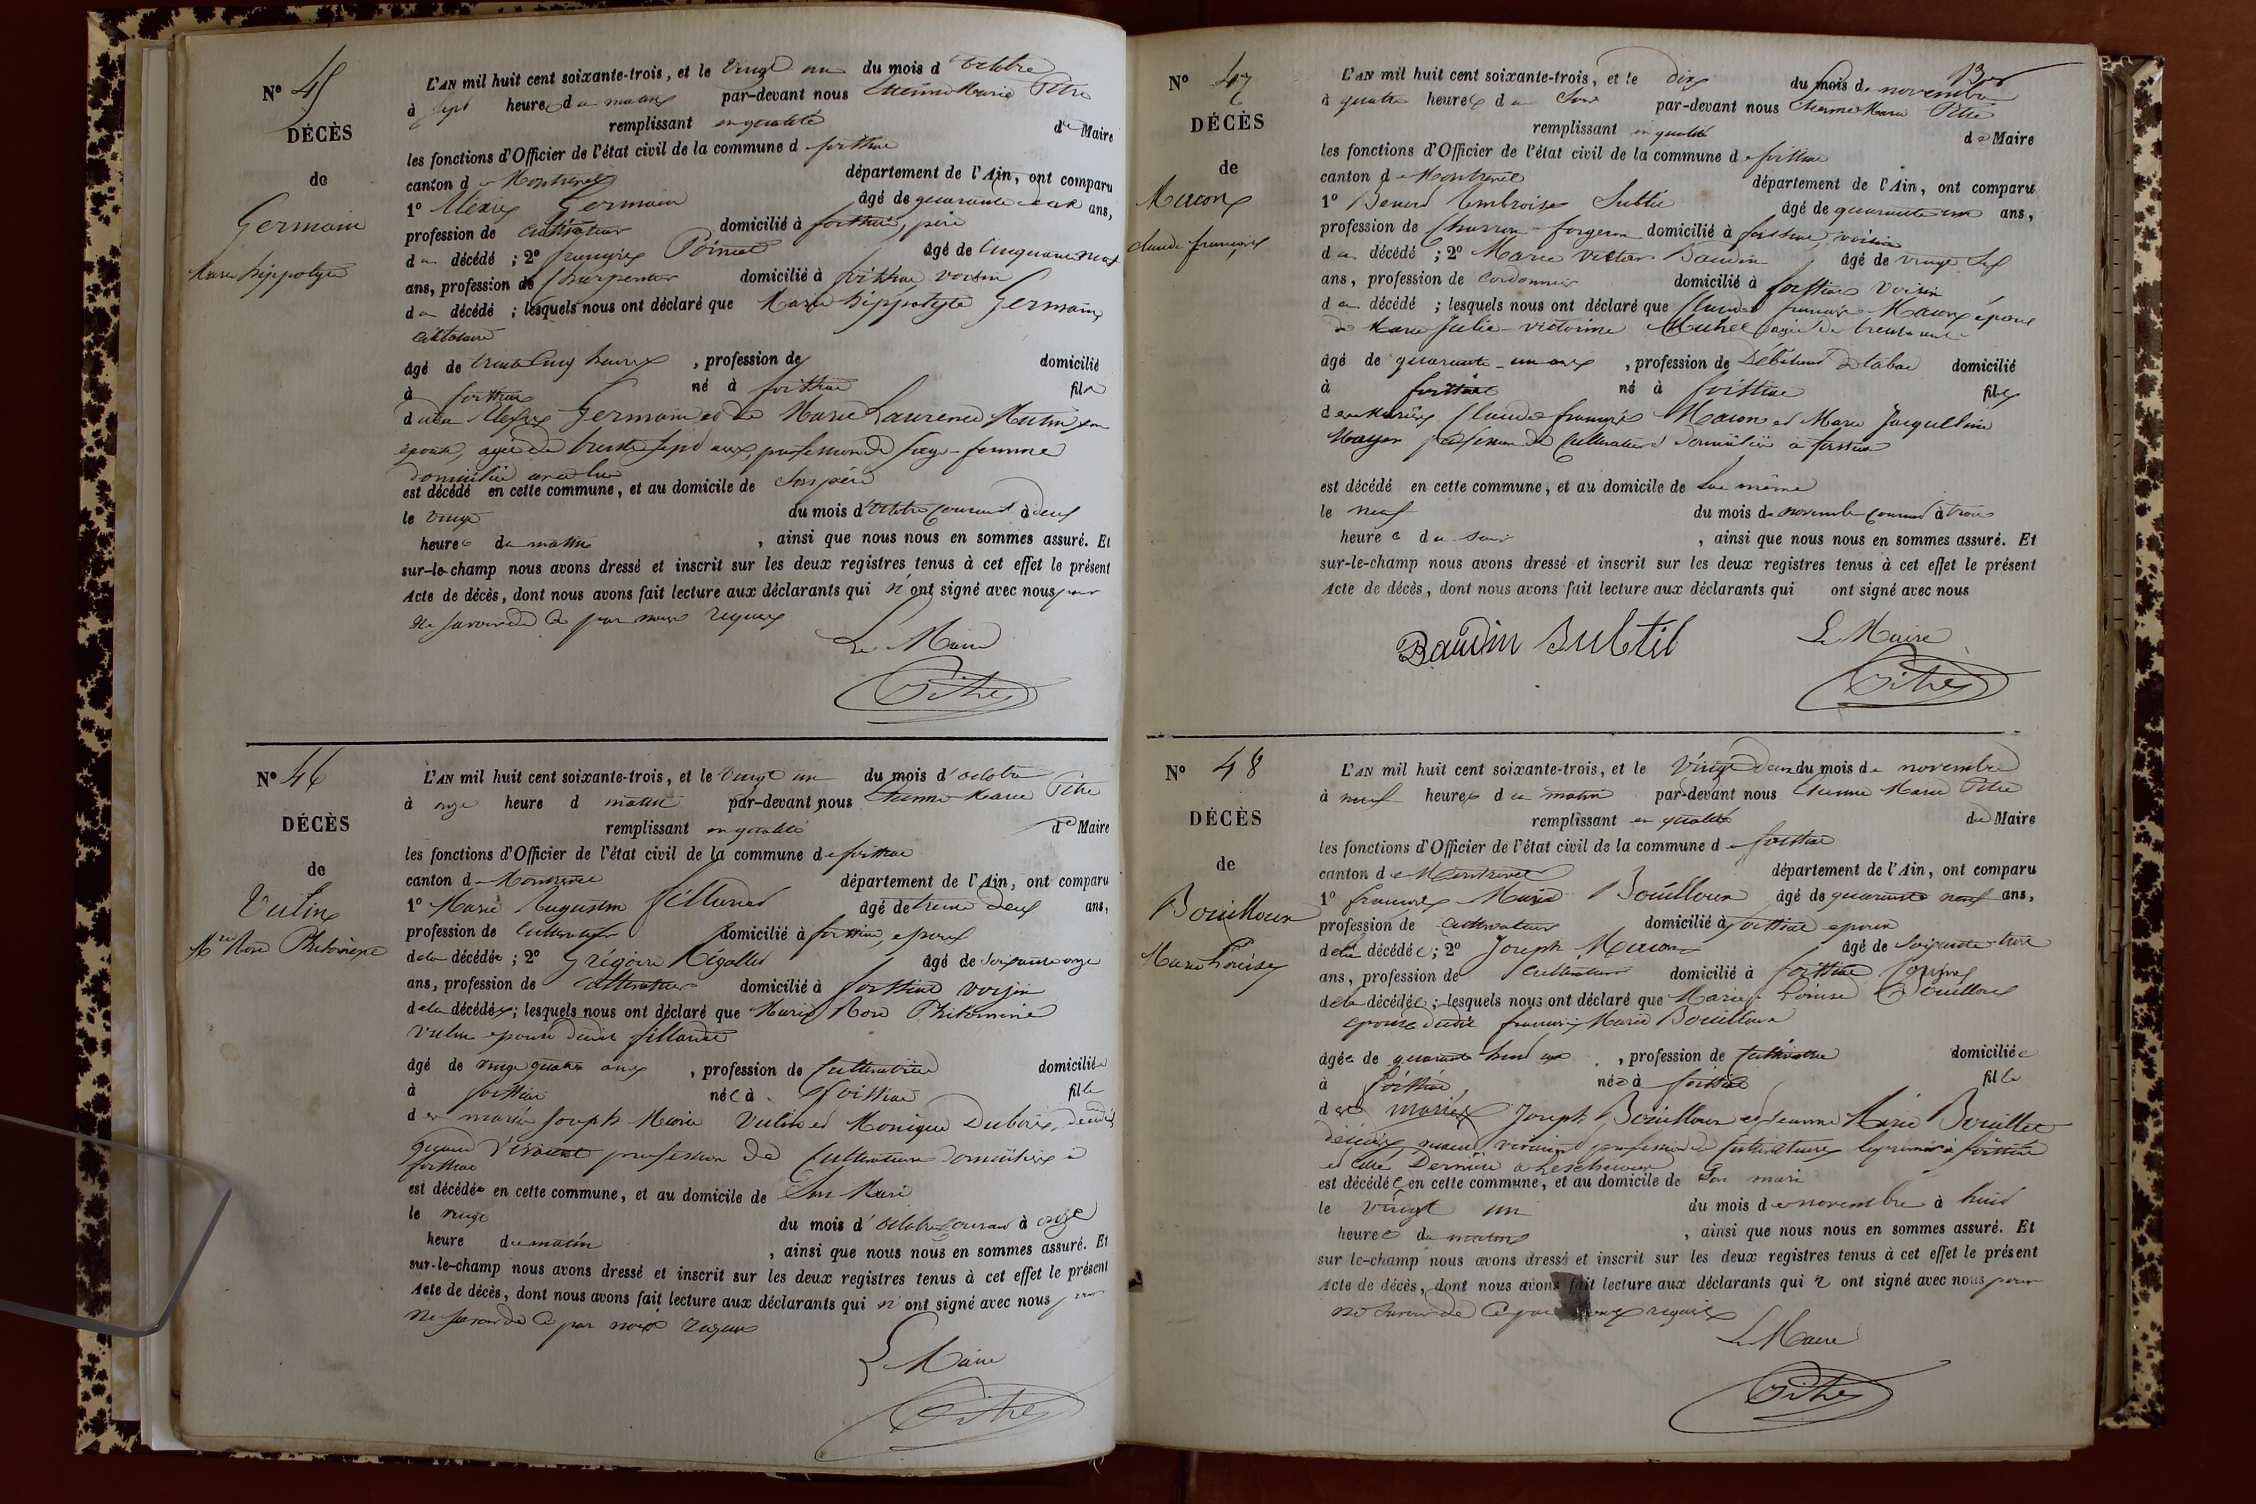 N° 45
DÉCÈS
de
Germain
Marie hippolyte
L'AN mil huit cent soixante-trois, et le vingt un du mois d'octobre
à sept heures du matin par-devant nous Etienne Marie Pitre
remplissant en qualité de Maire
les fonctions d'Officier de l'état civil de la commune de foissiat
canton de Montrevel département de l'Ain, ont comparu
1° Alexis Germain âgé de quarante ans,
profession de cultivateur domicilié à foissiat, père
du décédé ; 2° françois âgé de cinquante neuf
ans, profession de charpentier domicilié à foissiat voisin
du décédé ; lesquels nous ont déclaré que Marie hippolyte Germain
célibataire
âgé de trente cinq heures, profession de domicilié
à foissiat né à foissiat fils
dudit Alexis Germain et de Marie Laurence Mutin son
épouse, agée de trente sept ans, profession de sage-femme
domiciliée avec lui
est décédé en cette commune, et au domicile de son père
le vingt du mois d'octobre courant à deux
heures du matin, ainsi que nous nous en sommes assuré. Et
sur-le-champ nous avons dressé et inscrit sur les deux registres tenus à cet effet le présent
Acte de décès, dont nous avons fait lecture aux déclarants qui n'ont signé avec nous pour
ne savoir de ce par nous requis
Le Maire
Pitre
N° 46
DÉCÈS
de
Vulin
Mie Rose Philomène
L'AN mil huit cent soixante-trois, et le vingt un du mois d'octobre
à onze heure d matin par-devant nous Etienne Marie Pitre
remplissant en qualité de Maire
les fonctions d'Officier de l'état civil de la commune de foissiat
canton de Montrevel département de l'Ain, ont comparu
1° Marie Augustin fillardet âgé de trente deux ans,
profession de cultivateur domicilié à foissiat, époux
de la décédée ; 2° Grégoire Rigollet âgé de soixante onze
ans, profession de cultivateur domicilié à foissiat voisin
de la décédée ; lesquels nous ont déclaré que Marie Rose Philomène
Vulin épouse dudit fillardet
âgé de vingt quatre ans, profession de cultivatrice domiciliée
à foissiat née à foissiat fille
des mariés Joseph Marie Vulin et Monique Dubois, décédés
quand vivaient profession de cultivateurs domiciliés à
foissiat
est décédée en cette commune, et au domicile de son mari
le vingt du mois d'octobre courant à onze
heure du matin, ainsi que nous nous en sommes assuré. Et
sur-le-champ nous avons dressé et inscrit sur les deux registres tenus à cet effet le présent
Acte de décès, dont nous avons fait lecture aux déclarants qui n'ont signé avec nous pour
ne savoir de ce par nous requis
Le Maire
Pitre
N° 47
DÉCÈS
de
Macon
claude françois
L'AN mil huit cent soixante-trois, et le dix du mois de novembre
à quatre heures du soir par-devant nous Etienne Marie Pitre
remplissant en qualité de Maire
les fonctions d'Officier de l'état civil de la commune de foissiat
canton de Montrevel département de l'Ain, ont comparu
1° Benoit Ambroise Subtil âgé de quarante un ans,
profession de charron-forgeron domicilié à foissiat, voisin
du décédé ; 2° Marie Victor Baudin âgé de vingt
ans, profession de cordonnier domicilié à foissiat voisin
du décédé ; lesquels nous ont déclaré que Claude françois Macon époux
de Marie Julie-victorine Michel agée de trente ans
âgé de quarante-un ans, profession de Débitant de tabac domicilié
à foissiat né à foissiat fils
des mariés Claude françois Macon et Marie Jacqueline
Mayer profession de Cultivateurs domiciliés à foissiat
est décédé en cette commune, et au domicile de lui même
le neuf du mois de novembre courant à trois
heures du soir, ainsi que nous nous en sommes assuré. Et
sur-le-champ nous avons dressé et inscrit sur les deux registres tenus à cet effet le présent
Acte de décès, dont nous avons fait lecture aux déclarants qui ont signé avec nous
Baudin Subtil
Le Maire
Pitre
N° 48
DÉCÈS
de
Bouilloux
Marie Louise
L'AN mil huit cent soixante-trois, et le vingt deux du mois de novembre
à neuf heures du matin par-devant nous Etienne Marie Pitre
remplissant en qualité de Maire
les fonctions d'Officier de l'état civil de la commune de foissiat
canton de Montrevel département de l'Ain, ont comparu
1° françois Marie Bouilloux âgé de quarante neuf ans,
profession de cultivateur domicilié à foissiat époux
de la décédée ; 2° Joseph Macon âgé de soixante-trois
ans, profession de cultivateur domicilié à foissiat
de la décédée ; lesquels nous ont déclaré que Marie Louise Bouilloux
épouse dudit françois Marie Bouilloux
âgée de quarante huit ans, profession de cultivatrice domiciliée
à foissiat née à foissiat fille
des mariés Joseph Bouilloux et Jeanne Marie Bouillet
décédés quand vivaient profession de cultivateurs le premier à foissiat
et cette Dernière à Lescheroux
est décédée en cette commune, et au domicile de son mari
le vingt un du mois de novembre à huit
heures du matin, ainsi que nous nous en sommes assuré. Et
sur le-champ nous avons dressé et inscrit sur les deux registres tenus à cet effet le présent
Acte de décès, dont nous avons fait lecture aux déclarants qui n'ont signé avec nous pour
ne savoir de ce par nous requis
Le Maire
Pitre